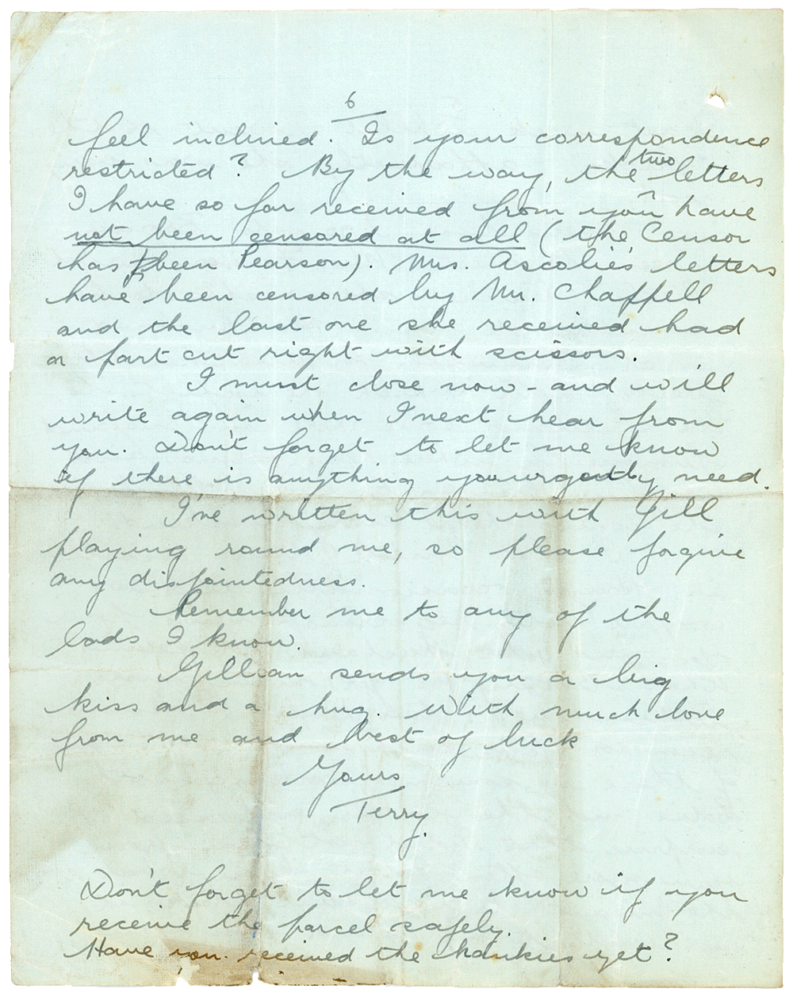 6
feel inclined. Is your correspondence
restricted? By the way, the two letters
I have so far received from you have
not been censored at all (the Censor
has been Pearson). Mrs. Ascolie's letters
have been censored by Mr. Chappell
and the last one she received had
a part cut right with scissors.
I must close now - and will
write again when I next hear from
you. Don't forget to let me know
if there is anything you urgently need.
I've written this with Gill
playing round me, so please forgive
any disjointedness.
Remember me to any of the
lads I know.
Gillian sends you a big
kiss and a hug. With much love
from me and best of luck
Yours
Terry.
Don't forget to let me know if you
receive the parcel safely.
Have you received the hankies yet?